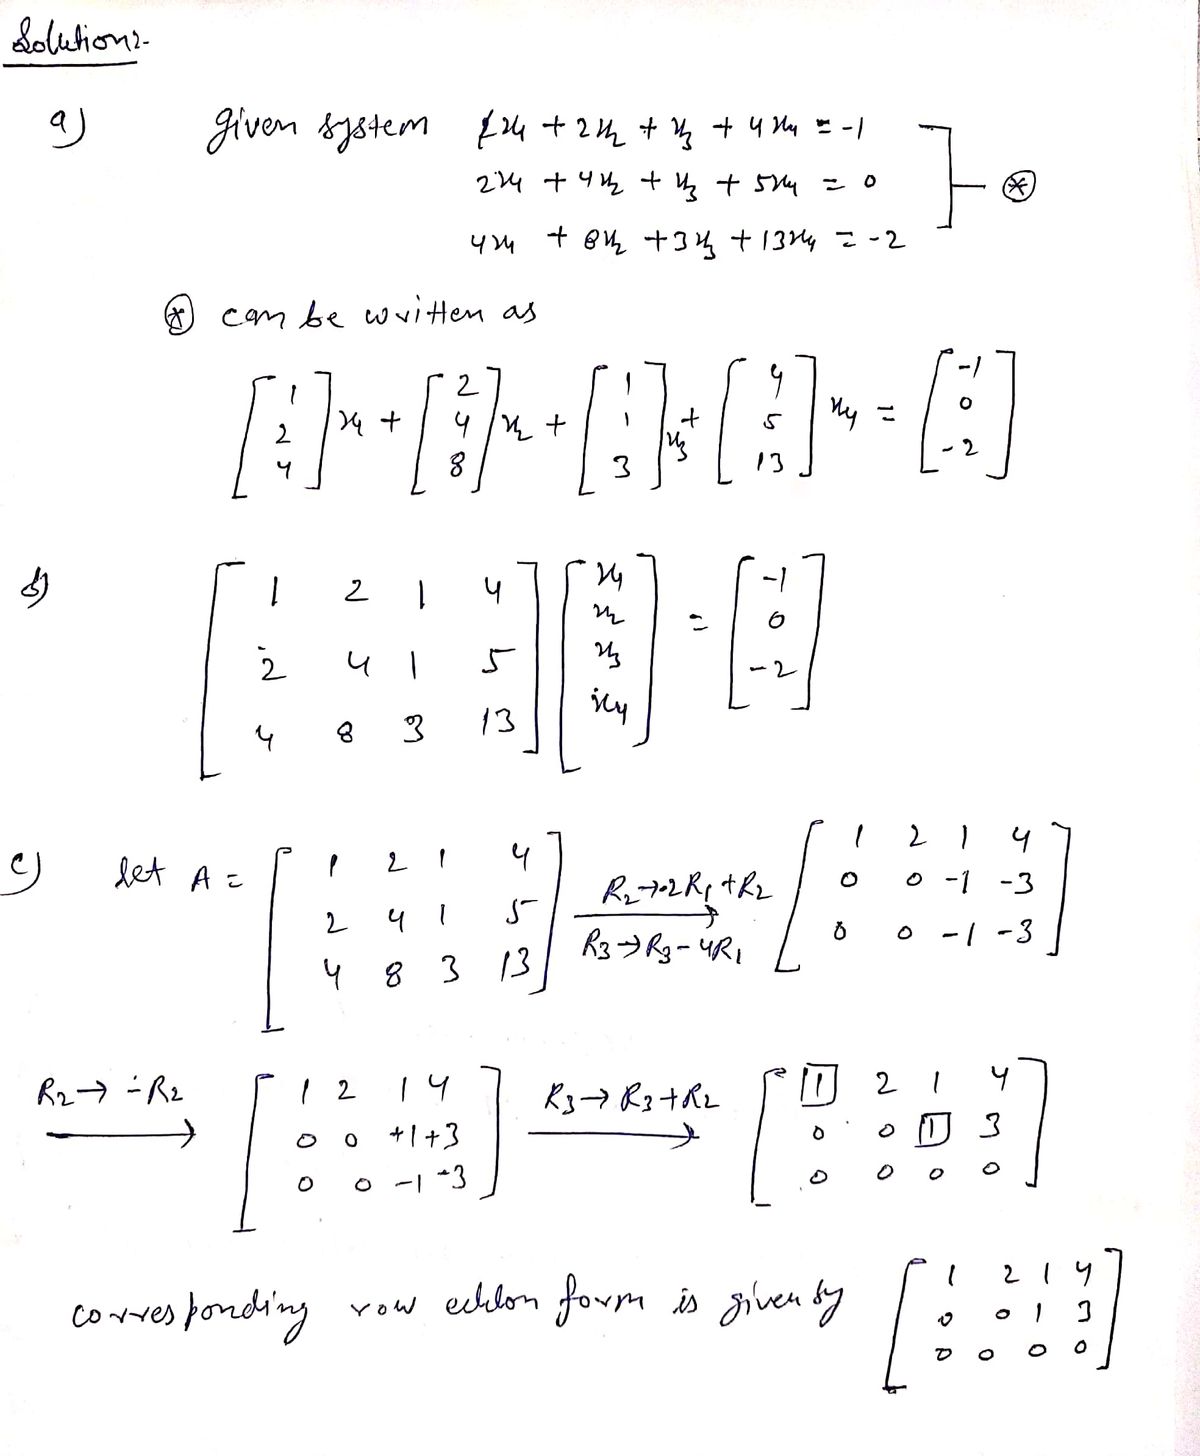 Solution:-
a) given system x₁ + 2x₂ + x₃ + 4x₄ = -1
2x₁ + 4x₂ + x₃ + 5x₄ = 0 ⊛
4x₁ + 8x₂ + 3x₃ + 13x₄ = -2
⊛ can be written as
[1 2 4] x₁ + [2 4 8] x₂ + [1 1 3] x₃ + [4 5 13] x₄ = [-1 0 -2]
b)
[1 2 1 4] [x₁] [-1]
[2 4 1 5] [x₂] = [0]
[4 8 3 13] [x₃] [-2]
[x₄]
c) let A = [1 2 1 4; 2 4 1 5; 4 8 3 13] R₂→-2R₁+R₂ R₃→R₃-4R₁ [1 2 1 4; 0 0 -1 -3; 0 0 -1 -3]
R₂→-R₂ [1 2 1 4; 0 0 +1 +3; 0 0 -1 -3] R₃→R₃+R₂ [1 2 1 4; 0 0 1 3; 0 0 0 0]
corresponding row echlon form is given by [1 2 1 4; 0 0 1 3; 0 0 0 0]